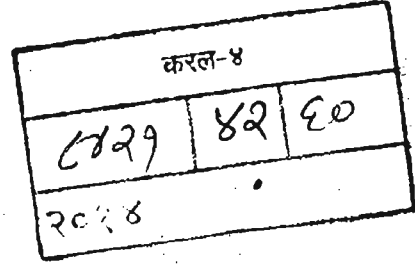 करल-४
८४२१ ४२ ६०
२०१४